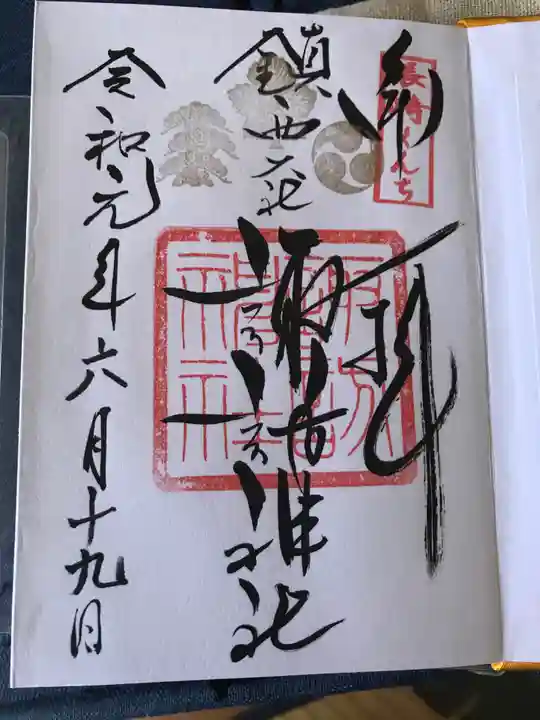 長崎くんち
奉拝
鎮西大社
諏訪神社
令和元年六月十九日